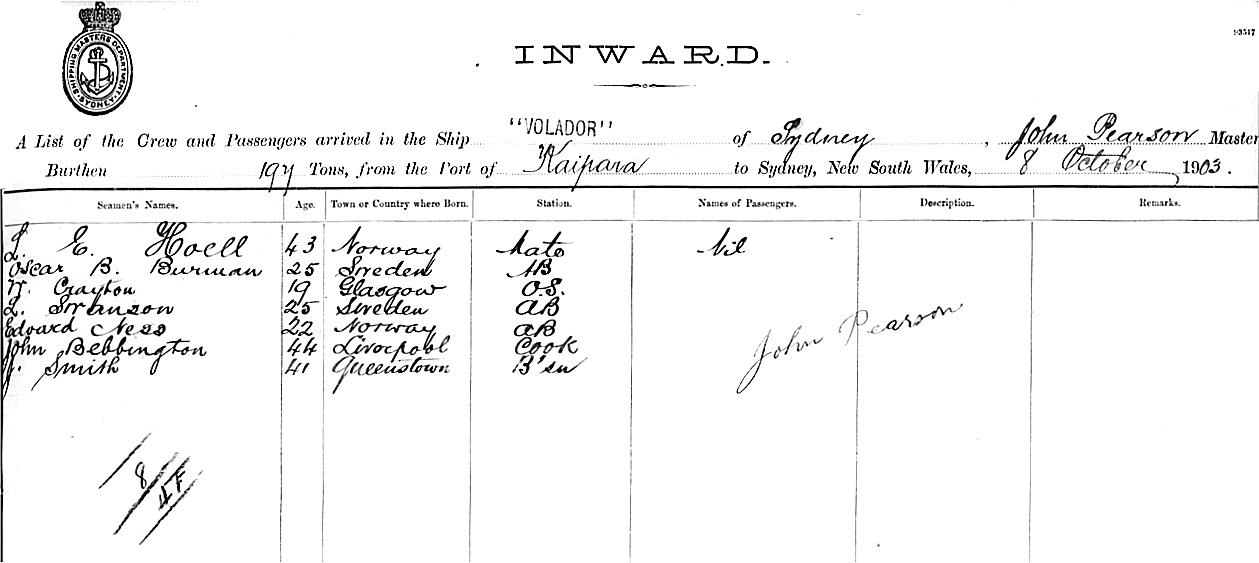 SHIPPING MASTERS DEPARTMENT SYDNEY
93517
INWARD.
A List of the Crew and Passengers arrived in the Ship "VOLADOR" of Sydney, John Pearson Master
Burthen 197 Tons, from the Port of Kaipara to Sydney, New South Wales, 8 October 1903.
Seamen's Names. Age. Town or Country where Born. Station. Names of Passengers. Description. Remarks.
L. E. Hoell 43 Norway Mate Nil
Oscar B. Burman 25 Sweden AB
W. Crayton 19 Glasgow O.S.
L. Swanson 25 Sweden AB
Edvard Ness 22 Norway AB
John Bebbington 44 Liverpool Cook
J. Smith 41 Queenstown B'sn
John Pearson
8/4F